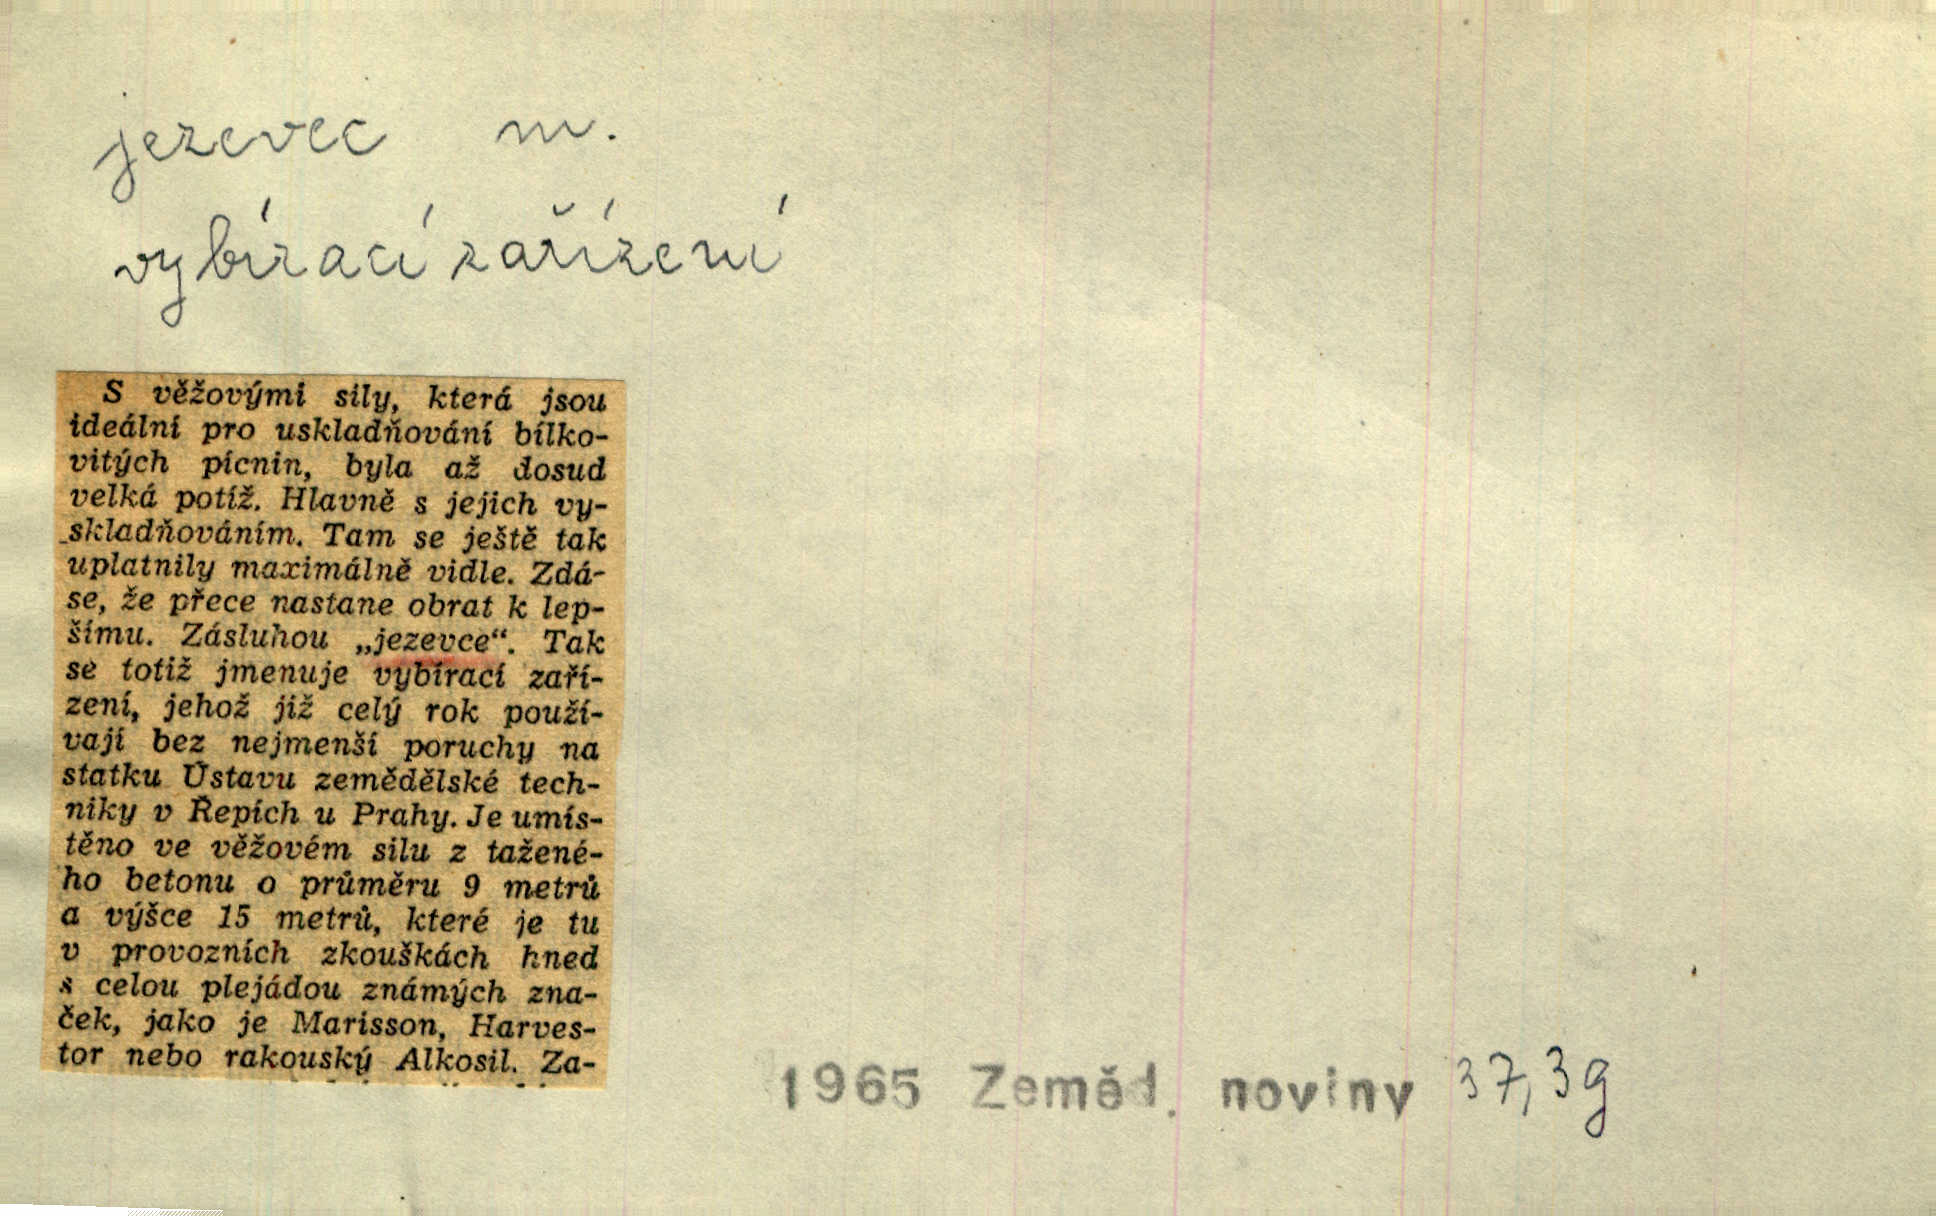 jezevec m.
vybírací zařízení
S věžovými sily, která jsou
ideální pro uskladňování bílko-
vitých pícnin, byla až dosud
velká potíž. Hlavně s jejich vy-
skladňováním. Tam se ještě tak
uplatnily maximálně vidle. Zdá-
se, že přece nastane obrat k lep-
šímu. Zásluhou „jezevce“. Tak
se totiž jmenuje vybírací zaří-
zení, jehož již celý rok použí-
vají bez nejmenší poruchy na
statku Ústavu zemědělské tech-
niky v Řepích u Prahy. Je umís-
těno ve věžovém silu z tažené-
ho betonu o průměru 9 metrů
a výšce 15 metrů, které je tu
v provozních zkouškách hned
s celou plejádou známých zna-
ček, jako je Marisson, Harves-
tor nebo rakouský Alkosil. Za-
1965 Zeměd. noviny 37,3g